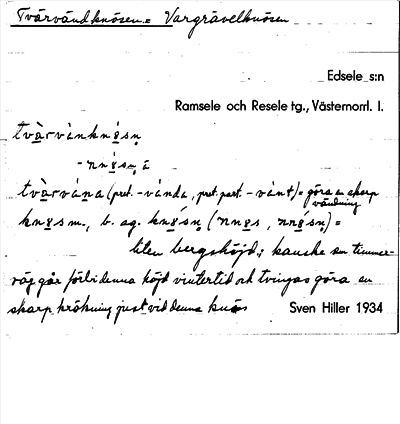 Tvärvändknösen = Vargrävelknösen
Edsele s:n
Ramsele och Resele tg., Västernorrl. l.
tvàrvànknɤ́sn̥
-nnɤ́sn̥ā
tvàrvàna (pret. -vánda, pret. part. -vánt) = göra en skarp
vändning
knɤs m., b. sg. knɤ́sn̥ (nnɤs, nnɤ́sn̥) =
liten bergshöjd; kanske en timmer-
väg går förbi denna höjd vintertid och tvingas göra en
skarp krökning just vid denna knös
Sven Hiller 1934